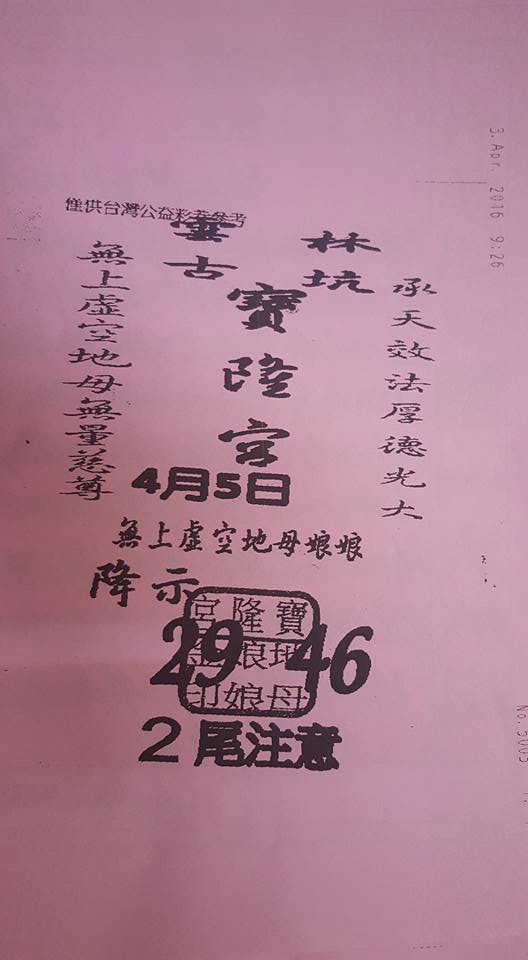 3.Apr. 2016 9:26
僅供台灣公益彩券參考
雲林
古坑
承天效法厚德光大
寶隆宮
無上虛空地母無量慈尊
4月5日
無上虛空地母娘娘
降示
寶隆宮
地母娘娘金印
29 46
2尾注意
No.5005